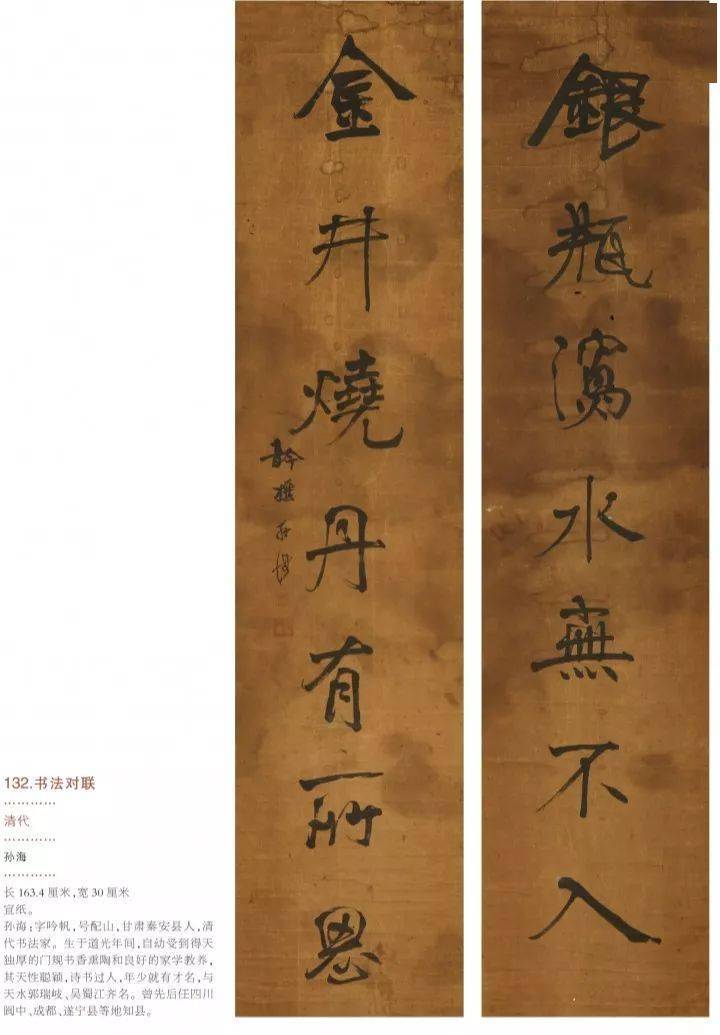 銀瓶瀉水無不入
金井燒丹有所恩
132.书法对联
清代
孙海
长 163.4 厘米,宽 30 厘米
宣纸。
孙海:字吟帆,号配山,甘肃秦安县人,清
代书法家。生于道光年间,自幼受到得天
独厚的门规书香熏陶和良好的家学教养,
其天性聪颖,诗书过人,年少就有才名,与
天水郭瑞岐、吴蜀江齐名。曾先后任四川
阆中、成都、遂宁县等地知县。